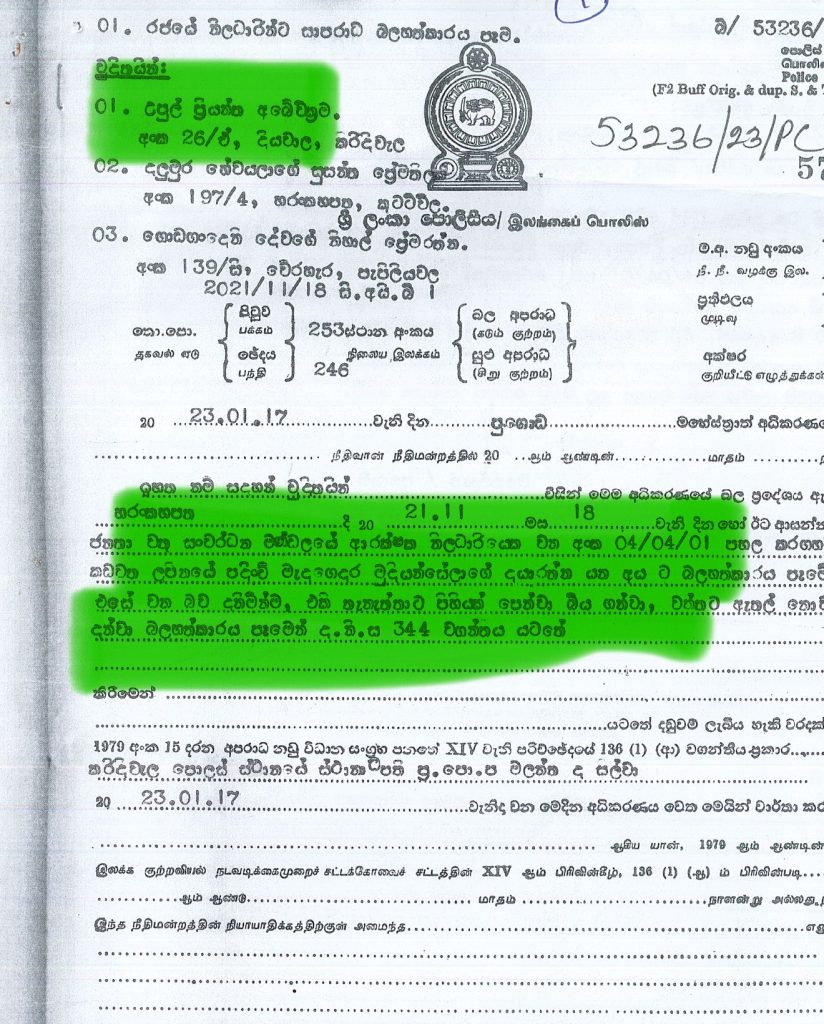 01. රජයේ නිලධාරින්ට සාපරාධ බලහත්කාරය පෑම.
බී/ 53236/
පොලිස්
Police
(F2 Buff Orig. & dup. S. &
චුදිතයින්:
01. උපුල් ප්‍රියන්ත අබේවික්‍රම.
අංක 26/ඒ, දියවාල, කිරිදිවැල
53236/23/PC
57
02. දලුමුර දේවයලාගේ සුසන්ත ප්‍රේමතිලක
අංක 197/4, හරංකහපත, කුට්ටිවිල.
ශ්‍රී ලංකා පොලීසිය/ இலங்கைப் பொலிஸ்
03. ගොඩගංදෙනි දේවගේ නිහාල් ප්‍රේමරත්න.
අංක 139/සි, වේරහැර, පැපිලියවල
2021/11/18 සි.අයි.බී 1
ම.අ. නඩු අංකය
நீ. நீ. வழக்கு இல.
ප්‍රතිඵලය
முடிவு
තො.පො.
தகவல் ஏடு
පිටුව
பக்கம்
ඡේදය
பந்தி
253 ස්ථාන අංකය
நிலைய இலக்கம்
246
බල අපරාධ
(கடும் குற்றம்)
සුළු අපරාධ
(சிறு குற்றம்)
අක්ෂර
குறியீட்டு எழுத்துக்கள்
20 23.01.17 වැනි දින පුගොඩ මහේස්ත්‍රාත් අධිකරණ
நீதிவான் நீதிமன்றத்தில் 20 ...ஆம் ஆண்டின் மாதம்
ඉහත නම් සඳහන් චුදිතයින් විසින් මෙම අධිකරණයේ බල ප්‍රදේශය
හරංකහපත දී 20 21.11 මස 18 වැනි දින හෝ ඊට ආසන්න
ජනතා වතු සංවර්ධන මණ්ඩලයේ ආරක්ෂක නිලධාරියෙක් වන අංක 04/04/01 පහල කරගහ
කඩවත ලිපිනයේ පදිංචි මැදගෙදර මුදියන්සේලාගේ දයාරත්න යන අය ට බලහත්කාරය පෑමේ
එසේ වන බව දැනිමින්ම, එකි තැනැත්තාට පිහියක් පෙන්වා බිය ගන්වා, වත්තට ඇතුල්
දන්වා බලහත්කාරය පෑමෙන් ද.නි.ස 344 වගන්තිය යටතේ
කිරීමෙන්
යටතේ දඬුවම් ලැබිය හැකි වරදක්
1979 අංක 15 දරන අපරාධ නඩු විධාන සංග්‍රහ පනතේ XIV වැනි පරිච්ඡේදයේ 136 (1) (ආ) වගන්තිය ප්‍රකාර
කිරිදිවැල පොලිස් ස්ථානයේ ස්ථානාධිපති ප්‍ර.පො.ප මලන්ත ද සිල්වා
20 23.01.17 වැනිදා වන මෙදින අධිකරණය වෙත මෙයින් වාර්තා කර
ஆகிய யான், 1979 ஆம் ஆண்டின்
இலக்க குற்றவியல் நடவடிக்கைமுறைச் சட்டக்கோவைச் சட்டத்தின் XIV ஆம் பிரிவின்கீழ், 136 (1) (ஆ) ம் பிரிவின்படி
ஆம் ஆண்டு மாதம் நாளன்று அல்லது
இந்த நீதிமன்றத்தின் நியாயாதிக்கத்திற்குள் அமைந்த